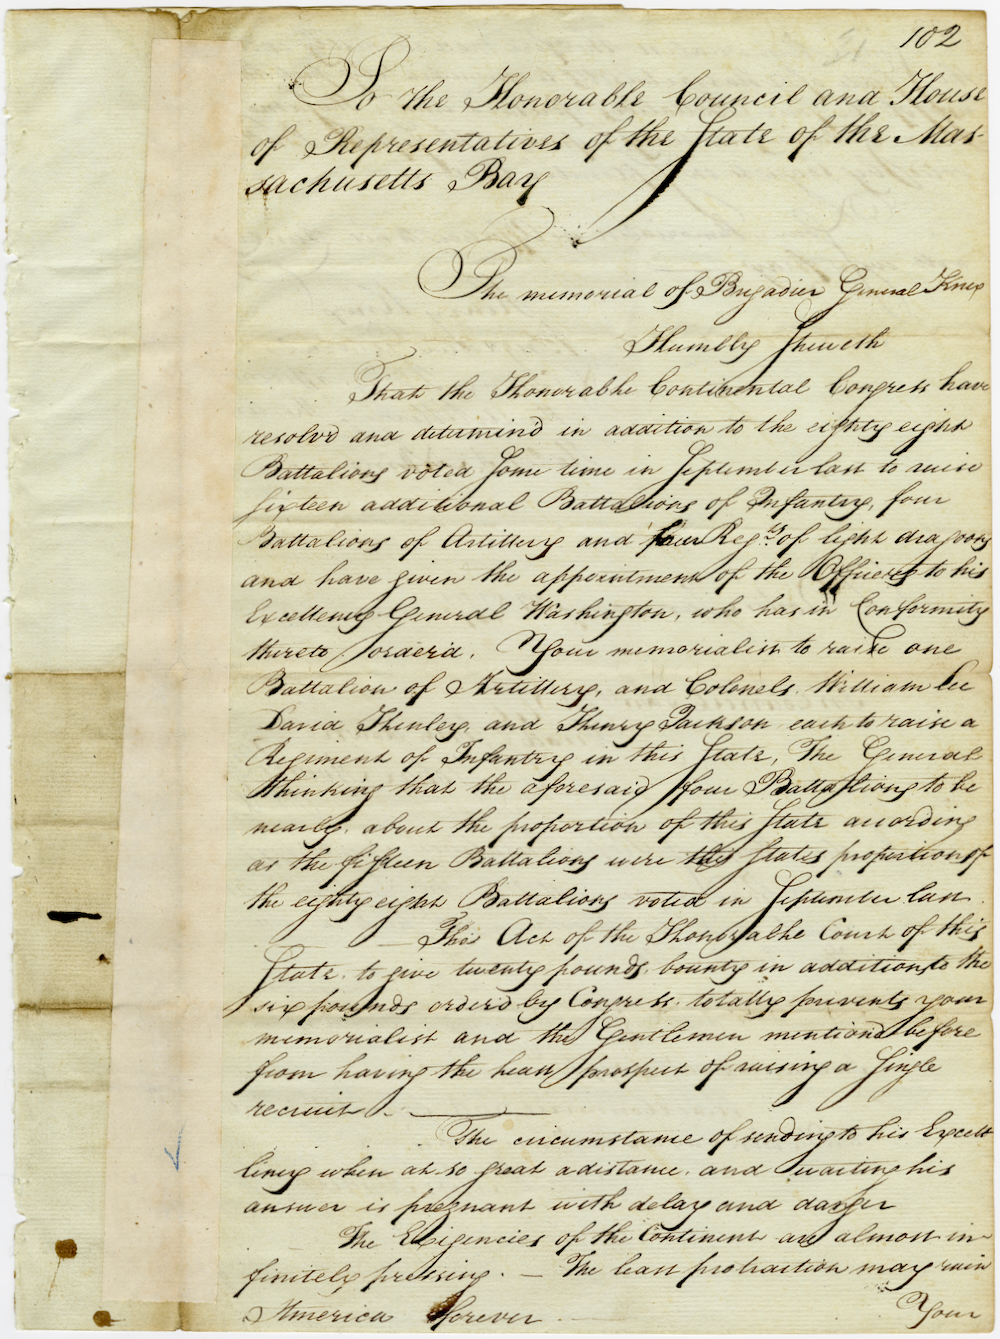 102
To the Honorable Council and House
of Representatives of the State of the Mas-
sachusetts Bay
The memorial of Brigadier General Knox
Humbly Sheweth
That the Honorable Continental Congress have
resolvd and determind in addition to the eighty eight
Battalions voted some time in September last to raise
sixteen additional Battalions of Infantry, four
Battalions of Artillery and four Regts. of light dragoons
and have given the appointment of the Officers to his
Excellency General Washington, who has in Conformity
thereto orderd. Your memorialist to raise one
Battalion of Artillery, and Colonels William Lee
David Henley, and Henry Jackson each to raise a
Regiment of Infantry in this State, The General
thinking that the aforesaid four Battalions to be
nearly about the proportion of this State according
as the fifteen Battalions were this States proportion of
the eighty eight Battalions voted in September last.
The Act of the Honorable Court of this
State to give twenty pounds bounty in addition to the
six pounds orderd by Congress totally prevents your
memorialist and the Gentlemen mentiond before
from having the least prospect of raising a single
recruit.
The circumstance of sending to his Excell
lency when at so great a distance and waiting his
answer is pregnant with delay and danger
The Exigencies of the Continent are almost in-
finitely pressing. — The least protraction may ruin
America forever
Your